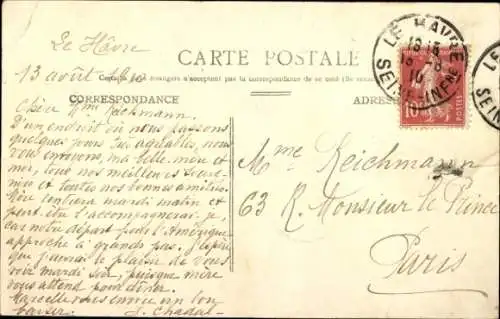 Le Hâvre
13 août 1910
CARTE POSTALE
étrangers n'acceptent pas la correspondance au recto
CORRESPONDANCE
ADRES
LE HAVRE
SEINE-INFRE
10
POSTES
Chère Mme Reichmann.
D'un endroit où nous passons
quelques jours très agréables, nous
vous envoyons, ma belle-mère et
moi, tous nos meilleurs souve-
nirs et toutes nos bonnes amitiés.
Mère rentrera mardi matin et
peut-être l'accompagnerai-je,
car notre départ pour l'Amérique
approche à grands pas. J'espère
que j'aurai le plaisir de vous
voir mardi soir, puisque mère
vous attend pour dîner.
Marcelle vous envoie un bon
baiser. J. Chadal
Mme Reichmann
63 R. Monsieur le Prince
Paris